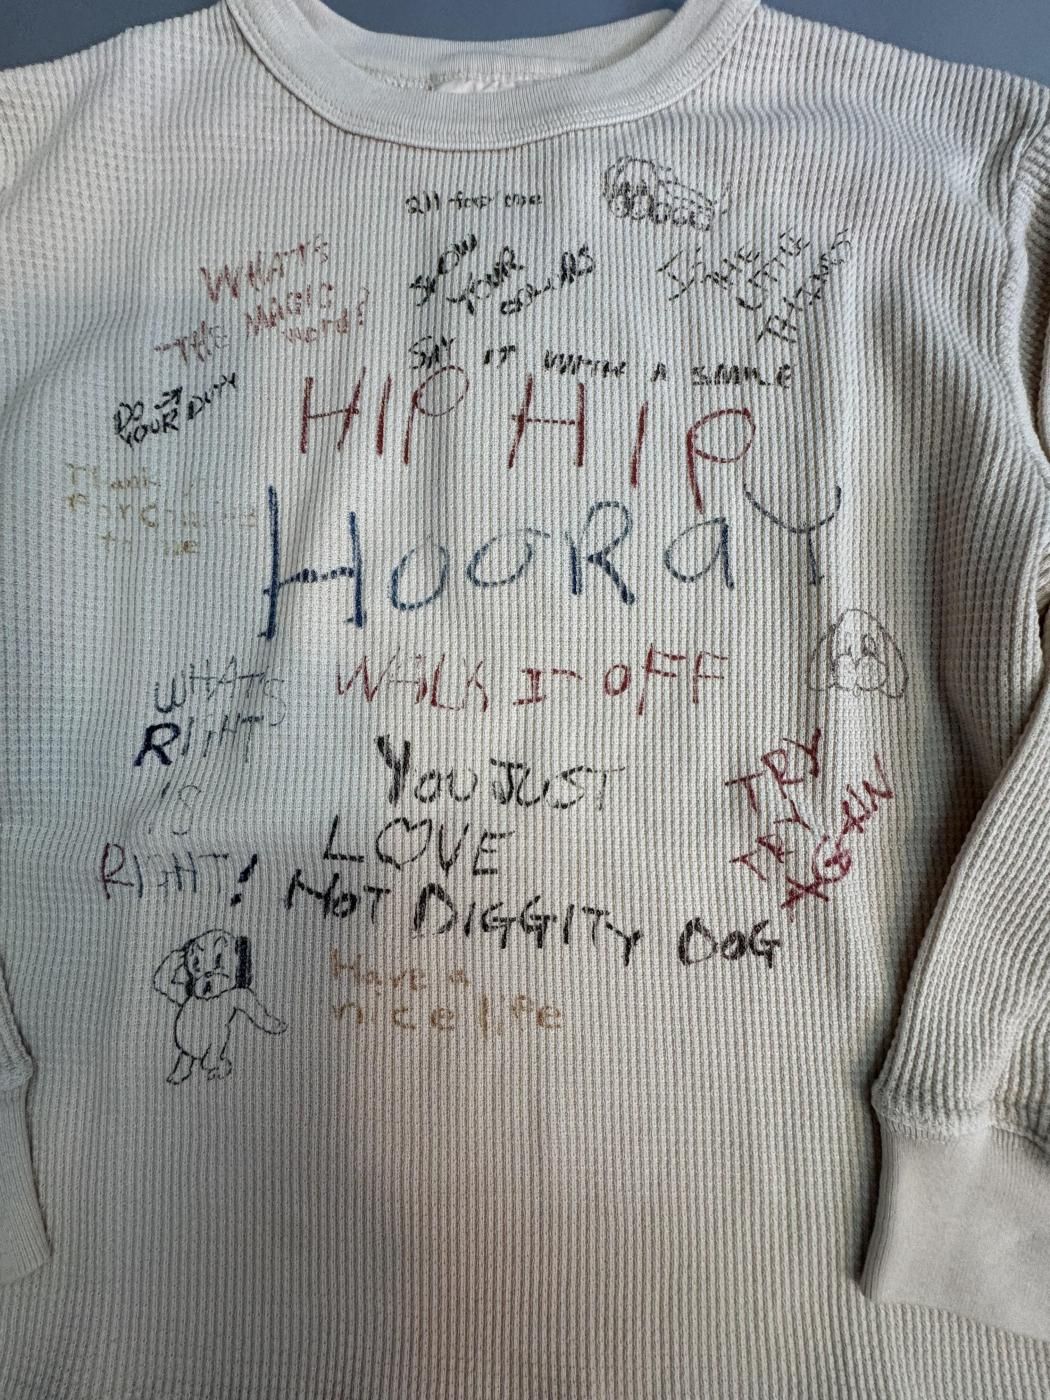 all for one
WHAT'S
THE MAGIC
Word?
SHOW
YOUR
COLORS
LITTLE
THINGS
SAY IT WITH A SMILE
DO
YOUR DUTY
HIP HIP
HOORaY
Thank
For Coming
to me
WHAT'S
RIGHT
IS
RIGHT!
WALK IT OFF
YOU JUST
LOVE
HOT DIGGITY DOG
TRY
TRY
AGAIN
Have a
nice life